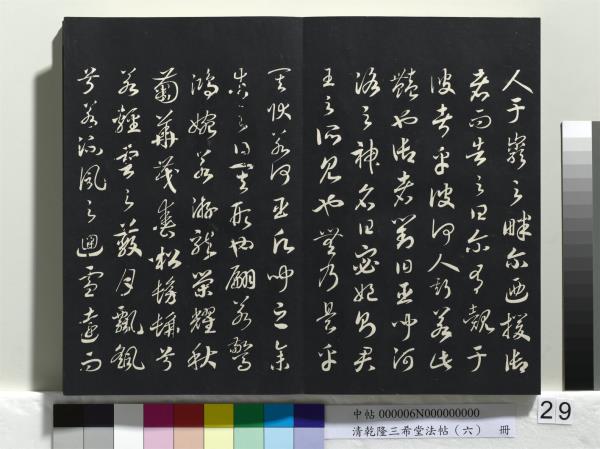 人于巖之畔爾迺援御
者而告之曰爾有覿于
彼者乎彼何人斯若此
豔也御者對曰臣聞河
洛之神名曰宓妃則君
王之所見也無乃是乎
其狀若何臣願聞之余
告之曰其形也翩若驚
鴻婉若游龍榮耀秋
菊華茂春松髣髴兮
若輕雲之蔽月飄颻
兮若流風之迴雪遠而
中帖 000006N000000000
清乾隆三希堂法帖(六) 冊
29